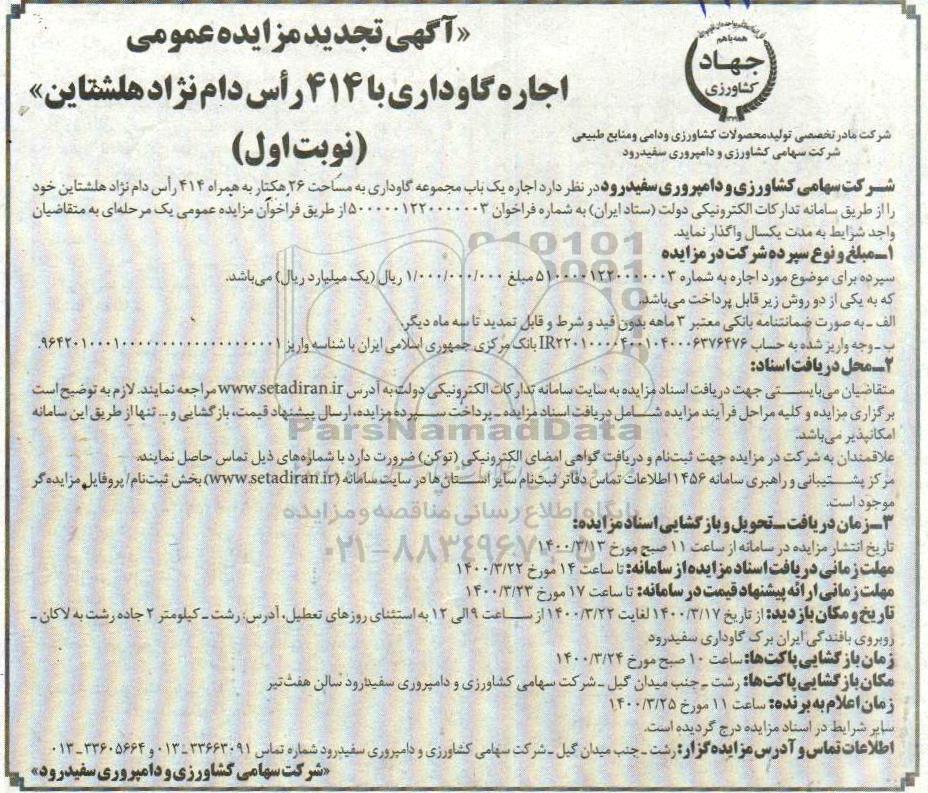 «آگهی تجدید مزایده عمومی
اجاره گاوداری با ۴۱۴ رأس دام نژاد هلشتاین»
(نوبت اول)
همه با هم
جهاد
کشاورزی
شرکت مادر تخصصی تولید محصولات کشاورزی و دامی و منابع طبیعی
شرکت سهامی کشاورزی و دامپروری سفیدرود
شرکت سهامی کشاورزی و دامپروری سفیدرود در نظر دارد اجاره یک باب مجموعه گاوداری به مساحت ۲۶ هکتار به همراه ۴۱۴ رأس دام نژاد هلشتاین خود
را از طریق سامانه تدارکات الکترونیکی دولت (ستاد ایران) به شماره فراخوان ۵۰۰۰۰۰۱۲۲۰۰۰۰۰۰۳ از طریق فراخوان مزایده عمومی یک مرحله‌ای به متقاضیان
واجد شرایط به مدت یکسال واگذار نماید.
۱ـ مبلغ و نوع سپرده شرکت در مزایده
سپرده برای موضوع مورد اجاره به شماره ۵۱۰۰۰۰۱۲۲۰۰۰۰۰۰۳ مبلغ ۱/۰۰۰/۰۰۰/۰۰۰ ریال (یک میلیارد ریال) می‌باشد.
که به یکی از دو روش زیر قابل پرداخت می‌باشد.
الف ـ به صورت ضمانتنامه بانکی معتبر ۳ ماهه بدون قید و شرط و قابل تمدید تا سه ماه دیگر.
ب ـ وجه واریز شده به حساب IR۲۲۰۱۰۰۰۰۴۰۰۱۰۴۰۰۰۶۳۷۶۴۷۶ بانک مرکزی جمهوری اسلامی ایران با شناسه واریز
۲ـ محل دریافت اسناد:
متقاضیان می‌بایستی جهت دریافت اسناد مزایده به سایت سامانه تدارکات الکترونیکی دولت به آدرس www.setadiran.ir مراجعه نمایند. لازم به توضیح است
برگزاری مزایده و کلیه مراحل فرآیند مزایده شامل دریافت اسناد مزایده ـ پرداخت سپرده مزایده، ارسال پیشنهاد قیمت، بازگشایی و ... تنها از طریق این سامانه
امکانپذیر می‌باشد.
ParsNamadData
علاقمندان به شرکت در مزایده جهت ثبت‌نام و دریافت گواهی امضای الکترونیکی (توکن) ضرورت دارد با شماره‌های ذیل تماس حاصل نمایند.
مرکز پشتیبانی و راهبری سامانه ۱۴۵۶ اطلاعات تماس دفاتر ثبت‌نام سایر استان‌ها در سایت سامانه (www.setadiran.ir) بخش ثبت‌نام/ پروفایل مزایده‌گر
موجود است.
پایگاه اطلاع رسانی مناقصه و مزایده
۳ـ زمان دریافت ـ تحویل و بازگشایی اسناد مزایده:
تاریخ انتشار مزایده در سامانه از ساعت ۱۱ صبح مورخ ۱۴۰۰/۳/۱۳
۰۲۱-۸۸۳۴۹۶۷۰-۵
مهلت زمانی دریافت اسناد مزایده از سامانه: تا ساعت ۱۴ مورخ ۱۴۰۰/۳/۲۲
مهلت زمانی ارائه پیشنهاد قیمت در سامانه: تا ساعت ۱۷ مورخ ۱۴۰۰/۳/۲۳
تاریخ و مکان بازدید: از تاریخ ۱۴۰۰/۳/۱۷ لغایت ۱۴۰۰/۳/۲۲ از ساعت ۹ الی ۱۲ به استثنای روزهای تعطیل، آدرس: رشت ـ کیلومتر ۲ جاده رشت به لاکان ـ
روبروی بافندگی ایران برک گاوداری سفیدرود
زمان بازگشایی پاکت‌ها: ساعت ۱۰ صبح مورخ ۱۴۰۰/۳/۲۴
مکان بازگشایی پاکت‌ها: رشت ـ جنب میدان گیل ـ شرکت سهامی کشاورزی و دامپروری سفیدرود سالن هفت تیر
زمان اعلام به برنده: ساعت ۱۱ مورخ ۱۴۰۰/۳/۲۵
سایر شرایط در اسناد مزایده درج گردیده است.
اطلاعات تماس و آدرس مزایده گزار: رشت ـ جنب میدان گیل ـ شرکت سهامی کشاورزی و دامپروری سفیدرود شماره تماس ۳۳۶۶۳۰۹۱ـ۰۱۳ و ۳۳۶۰۵۶۶۴ـ۰۱۳
«شرکت سهامی کشاورزی و دامپروری سفیدرود»